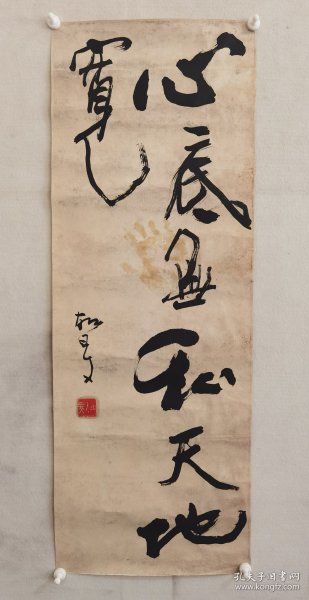 心底無私天地
寬
孔夫子旧书网
www.kongfz.com